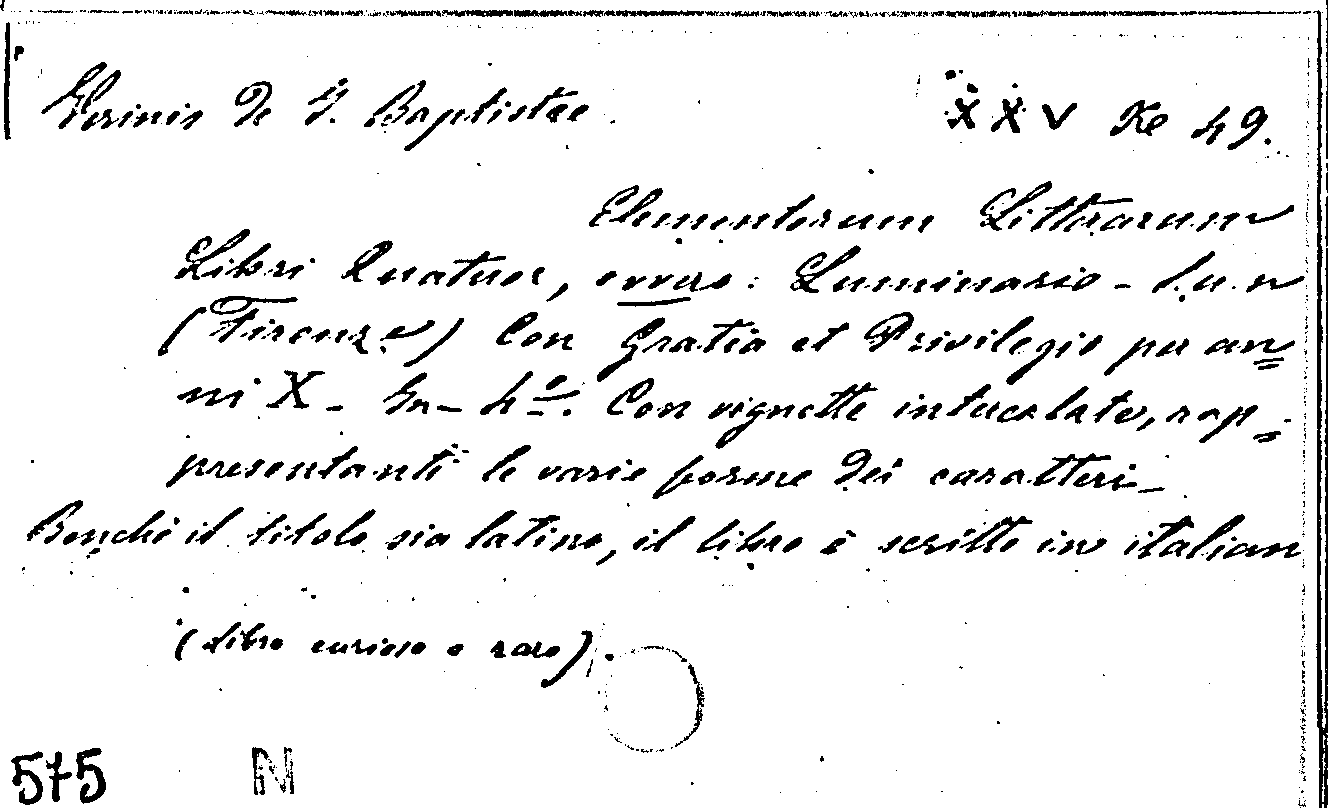 Verinis De G. Baptistae. XXV Ke 49.
Elementorum Litterarum
Libri Quatuor, ovvero: Luminario - S.u.n
(Firenze) Con Gratia et Privilegio per an=
ni X - In - 4º. Con vignette intercalate, rap=
presentanti le varie forme dei caratteri -
Benchè il titolo sia latino, il libro è scritto in italian
(Libro curioso e raro).
575 N